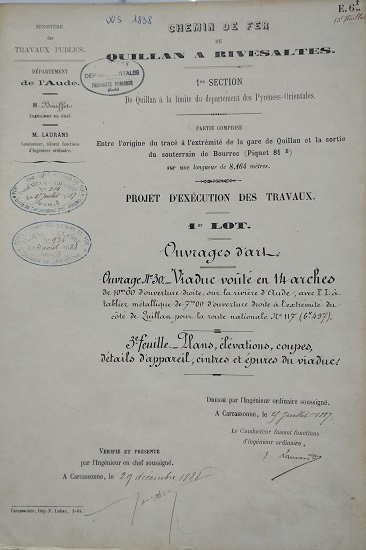 OUS 1838
E. 6. f
(3e feuille)
MINISTÈRE
des
TRAVAUX PUBLICS.
DÉPARTEMENT
de l'Aude.
M. Bouffet
Ingénieur en chef
M. LAURANS
Conducteur, faisant fonctions
d'Ingénieur ordinaire.
CHEMIN DE FER
DE
QUILLAN A RIVESALTES.
1re SECTION
De Quillan à la limite du département des Pyrénées-Orientales.
PARTIE COMPRISE
Entre l'origine du tracé à l'extrémité de la gare de Quillan et la sortie
du souterrain de Bourrec (Piquet 81 )
sur une longueur de 8,164 mètres.
PROJET D'EXÉCUTION DES TRAVAUX.
1er LOT.
Ouvrages d'art.
Ouvrage N° 30. Viaduc voûté en 14 arches
de 10m00 d'ouverture droite, sur la rivière d'Aude, avec P. I. à
tablier métallique de 7m00 d'ouverture droite à l'extrémité du
côté de Quillan pour la route nationale N° 117 (6k497).
3e feuille. Plans, élévations, coupes,
détails d'appareil, cintres et épures du viaduc.
DRESSÉ par l'Ingénieur ordinaire soussigné.
A Carcassonne, le 25 juillet 1887
Le Conducteur faisant fonctions
d'ingénieur ordinaire,
Laurans
VÉRIFIÉ ET PRÉSENTÉ
par l'Ingénieur en chef soussigné.
A Carcassonne, le 29 décembre 188
Carcassonne, Imp. P. Labau, 1-84.